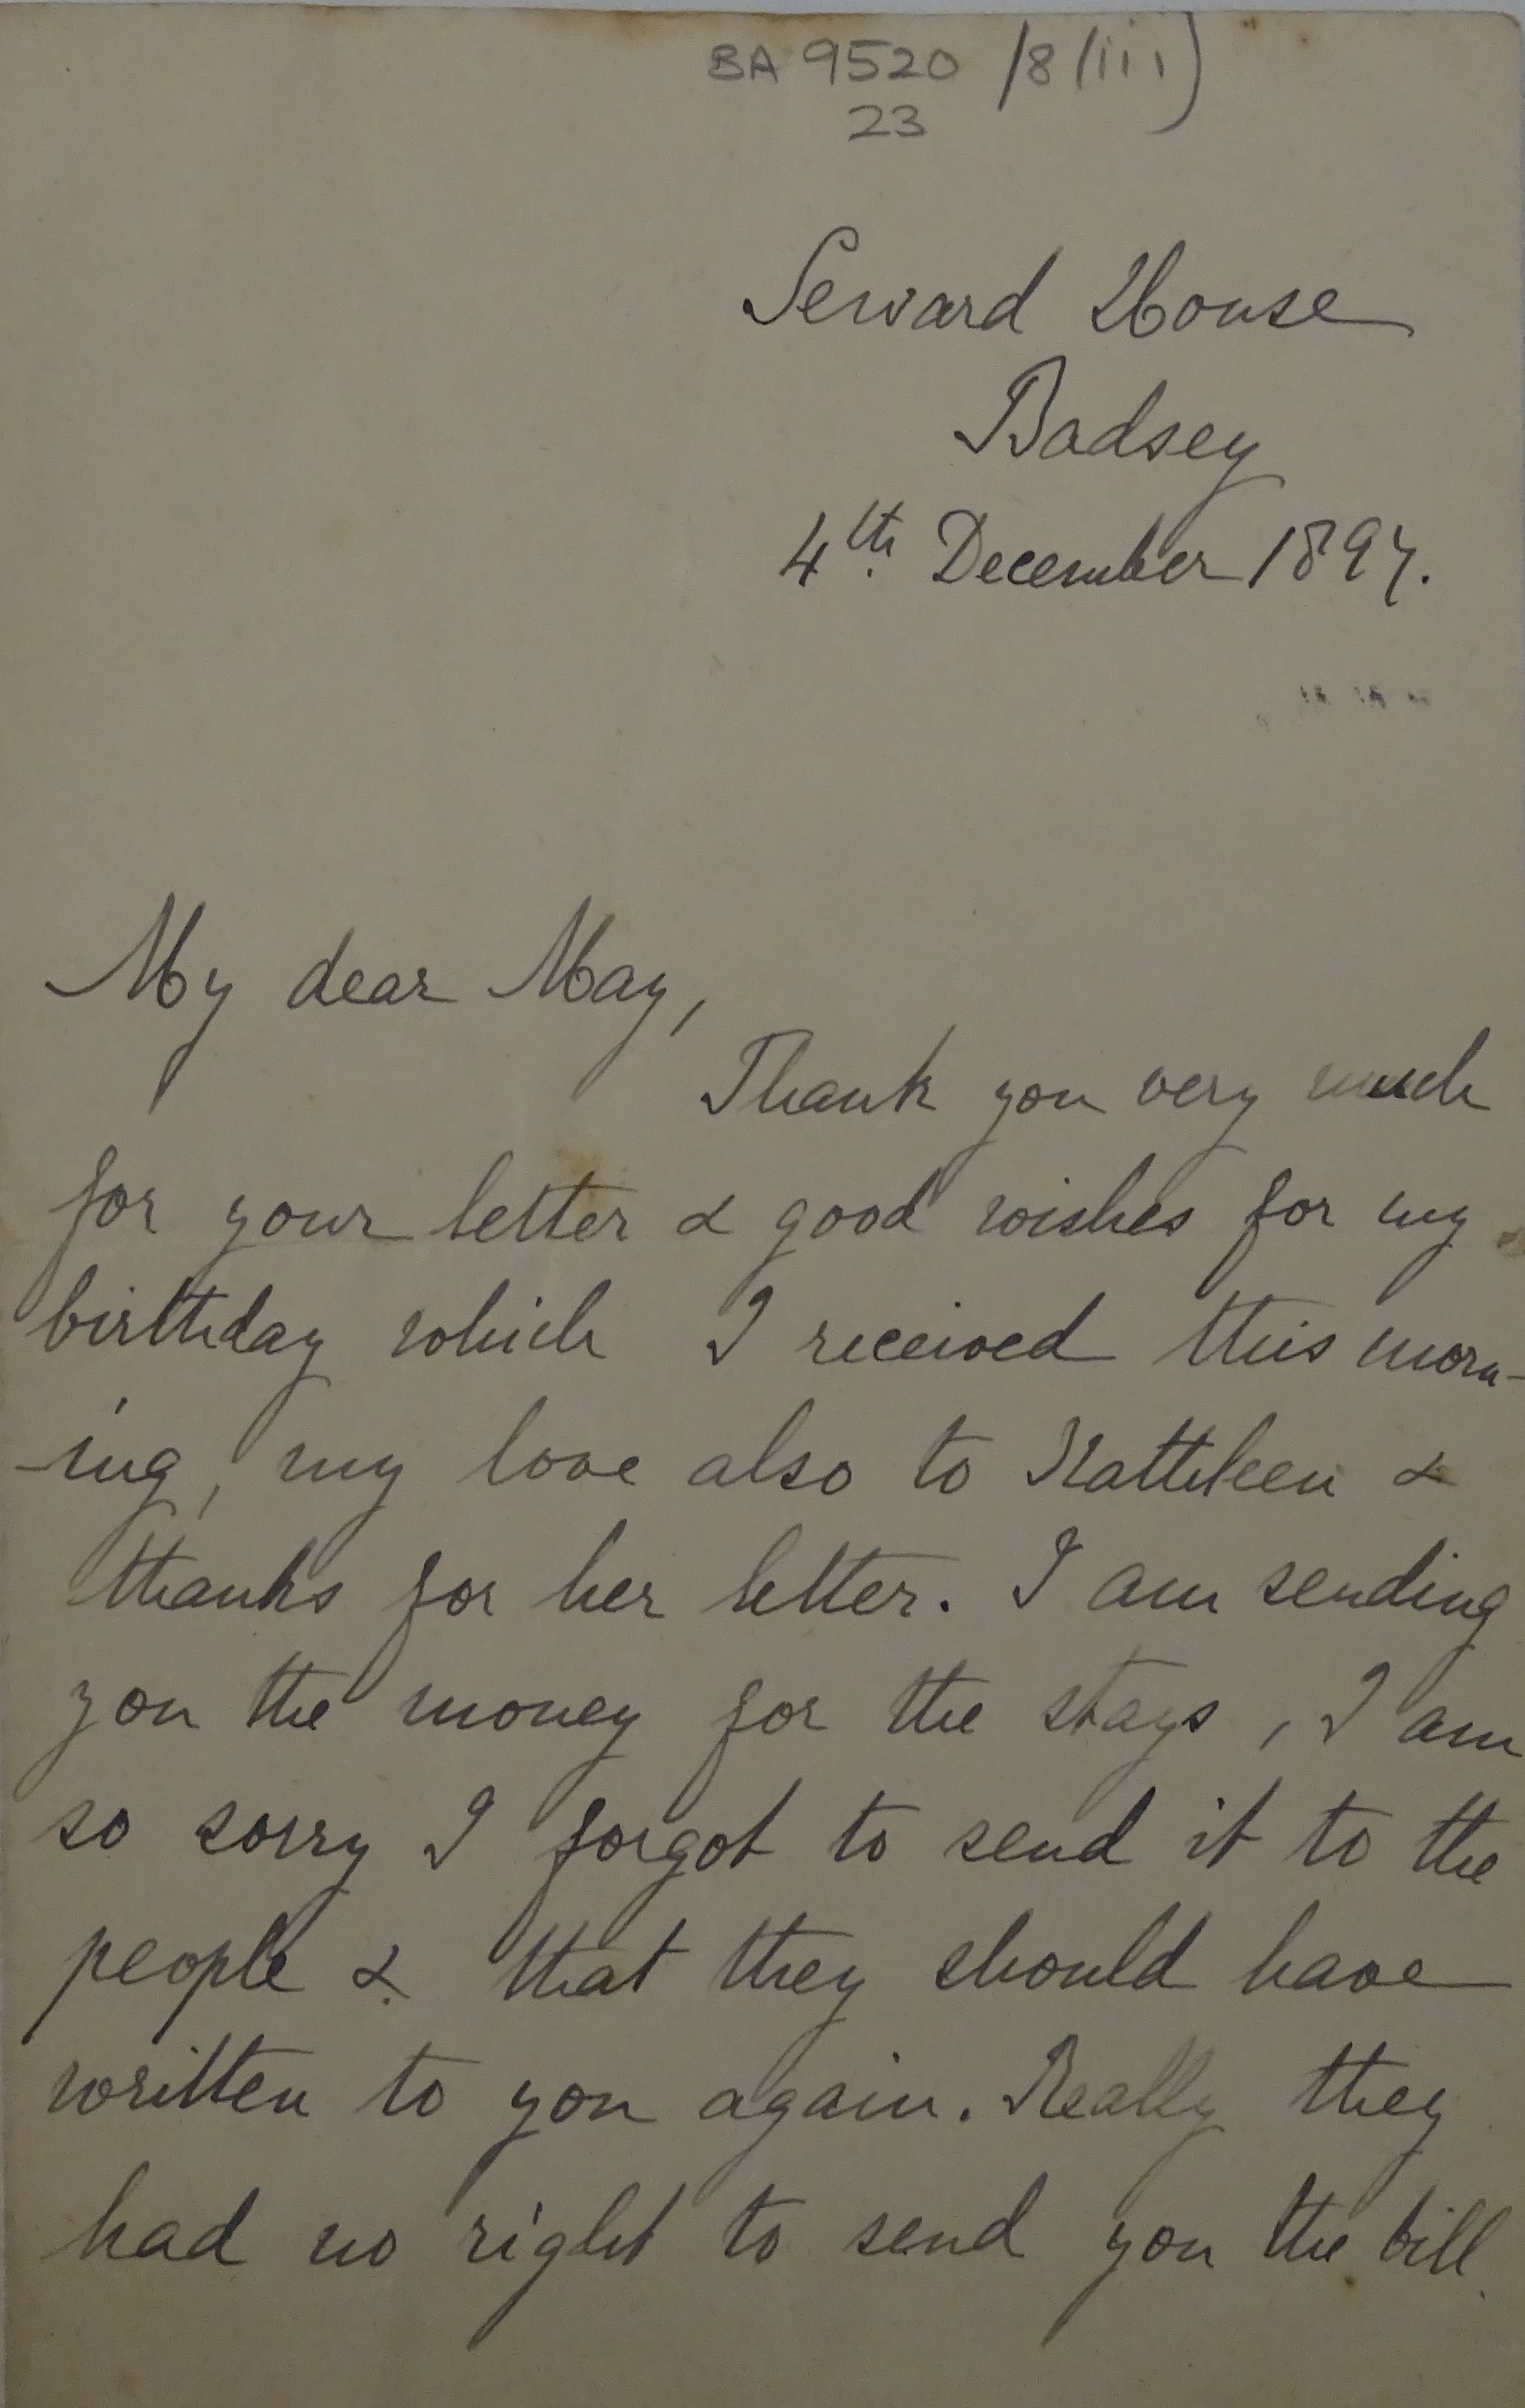 BA 9520 /8(iii)
23
Seward House
Badsey
4th. December 1897.
My dear May,
Thank you very much
for your letter & good wishes for my
birthday which I received this morn-
-ing, my love also to Kathleen &
thanks for her letter. I am sending
you the money for the stays, I am
so sorry I forgot to send it to the
people & that they should have
written to you again. Really they
had no right to send you the bill.